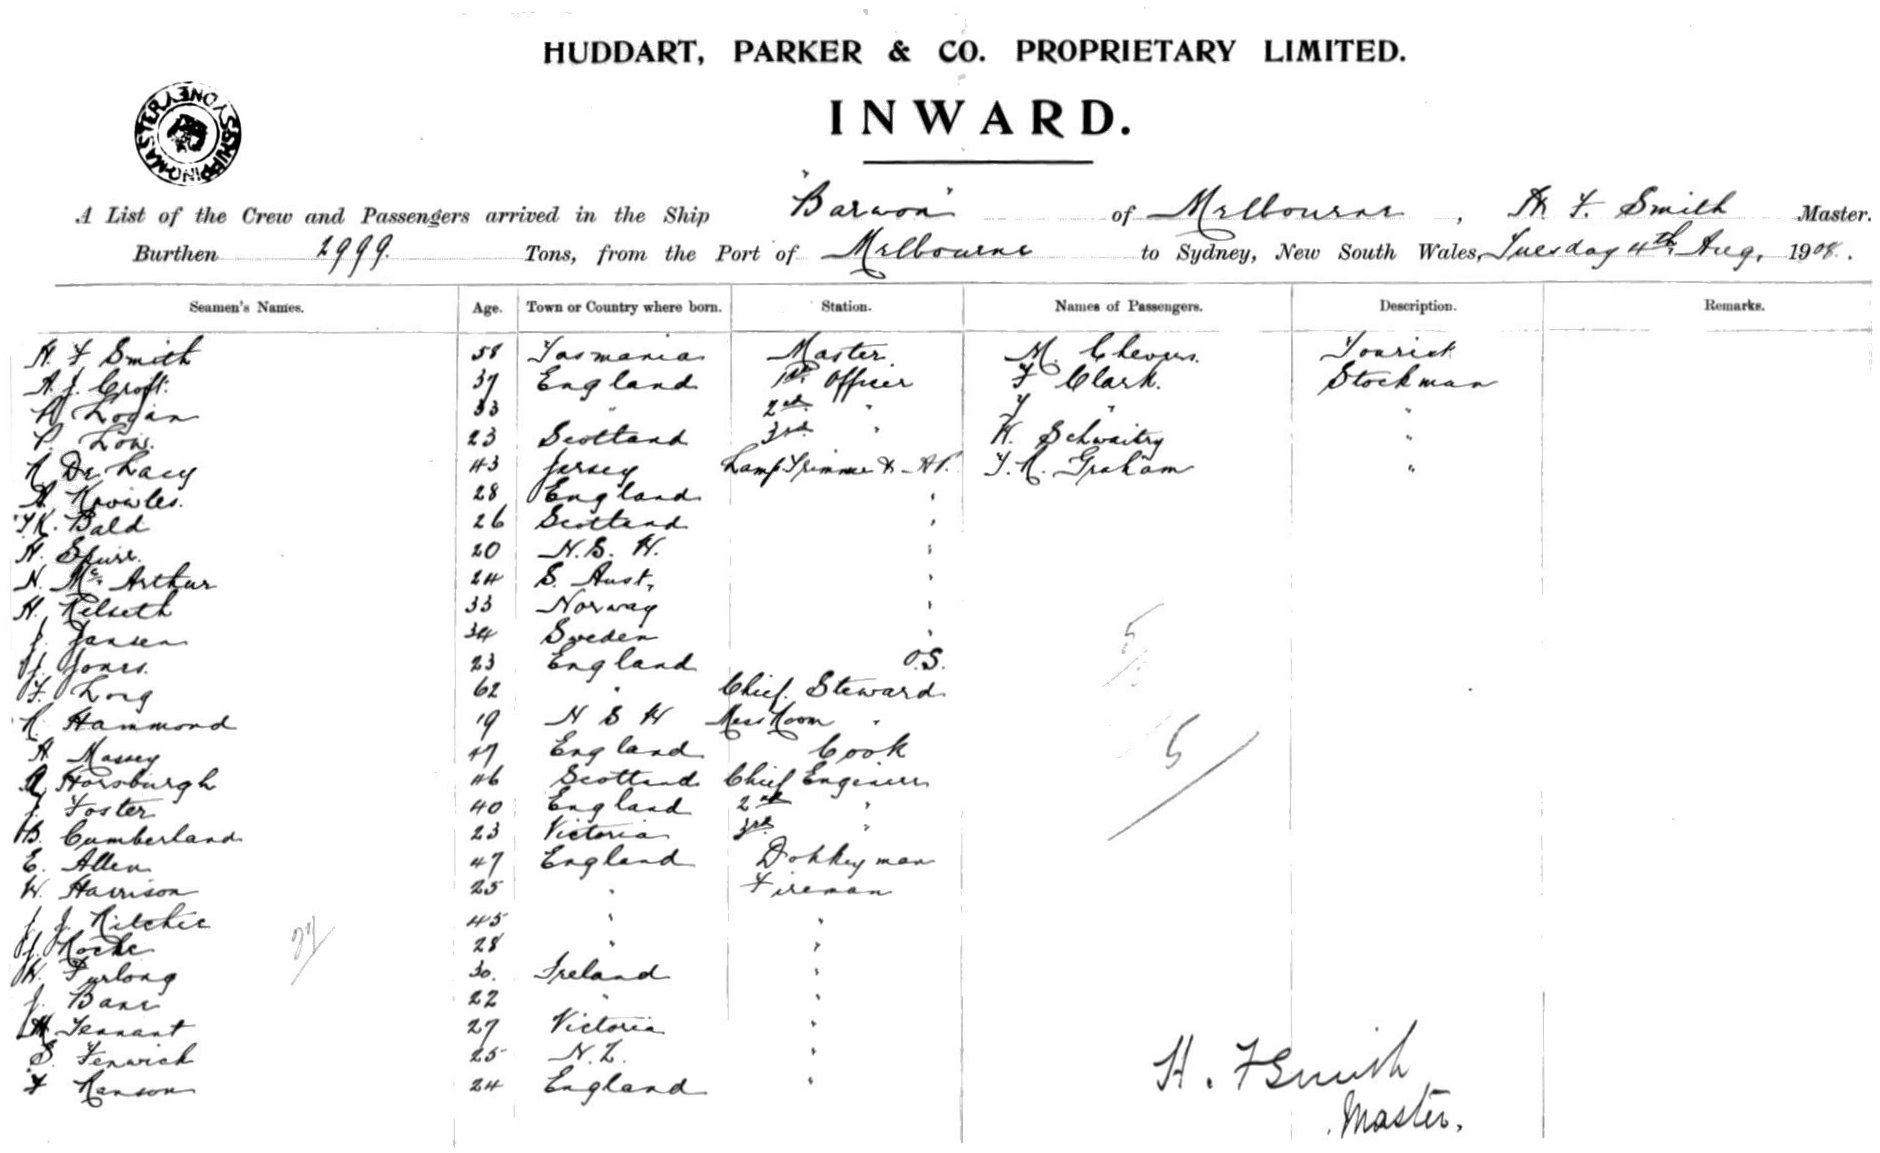 HUDDART, PARKER & CO. PROPRIETARY LIMITED.
INWARD.
SHIPPING MASTER SYDNEY
A List of the Crew and Passengers arrived in the Ship "Barwon" of Melbourne, H. F. Smith Master.
Burthen 2999. Tons, from the Port of Melbourne to Sydney, New South Wales, Tuesday 4th Aug, 1908.
Seamen's Names. Age. Town or Country where born. Station. Names of Passengers. Description. Remarks.
H. F Smith 58 Tasmania Master M. Tourist
A. J. Croft. 37 England 1st Officer F Clark. Stockman
Logan 33 " 2nd " " "
P. Low. 23 Scotland 3rd " "
R De Lacy 43 Jersey Lamp Trimmer & AB. T. R. Graham "
A. Knowles. 28 England "
Bald 26 Scotland "
H. Spurr. 20 N. S. W. "
N. Mc Arthur 24 S. Aust, "
H. Kelseth 33 Norway "
J. Jansen 34 Sweden "
J. Jones. 23 England O.S.
F. Long 62 " Chief Steward
R. Hammond 19 N S W Mess Room "
A Massey 47 England Cook
Horsburgh 46 Scotland Chief Engineer
J. Foster 40 England 2nd "
B. Cumberland 23 Victoria 3rd "
E. Allen 47 England Donkeyman
W. Harrison 25 " Fireman
J. J. Ritchie 45 " "
J. Roche 28 " "
W. Furlong 30. Ireland "
J. Bane 22 " "
Tennant 27 Victoria "
S. Fenwick 25 N. Z. "
F Ranson 24 England "
5
27
H. F Smith
Master.